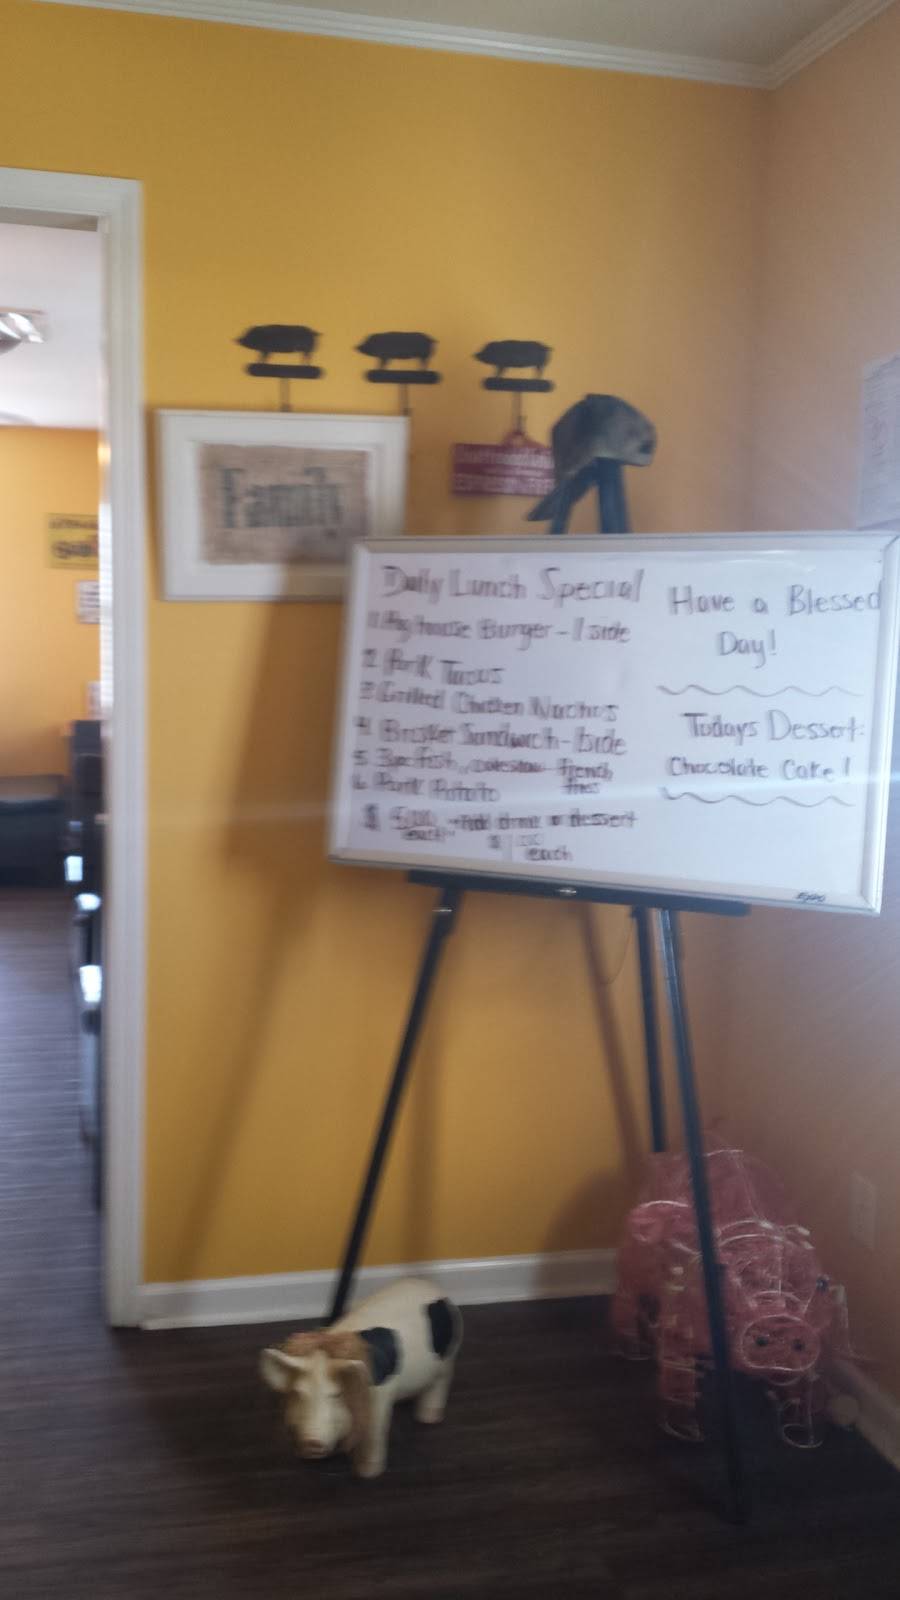 Family
Daily Lunch Special
1 Hog house Burger - 1 side
2 Pork Tacos
3 Grilled Chicken Nachos
4 Brisket Sandwich - 1 side
5 fish, coleslaw french
fries
6 Pork Potato
$ 5.00 Add drink or dessert
each $1.00
each
Have a Blessed
Day!
Todays Dessert:
Chocolate Cake!